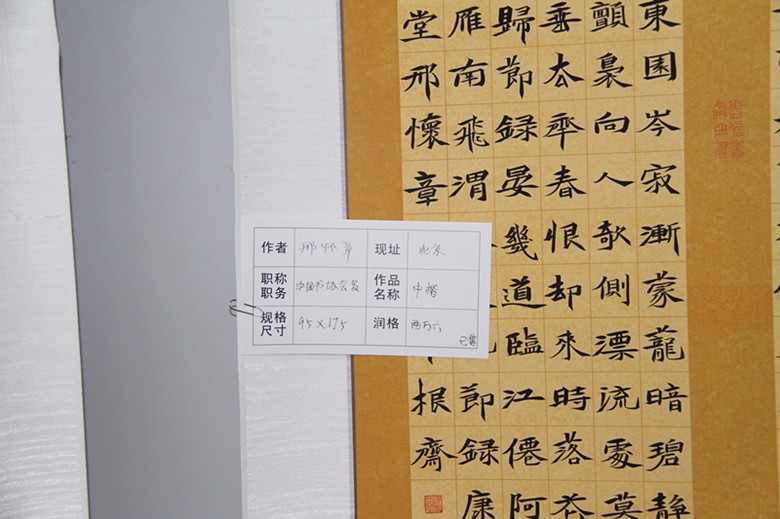 東園岑寂漸蒙蘢暗碧靜
顫裊向人欹側漂流處莫
垂去年春恨却來時落花
歸節録晏幾道臨江僊阿
雁南飛渭
節録康
堂邢懷章
根齋
作者 邢怀章 现址 北京
职称职务 中国书协会员 作品名称 中楷
规格尺寸 95×175 润格 两万六
已售